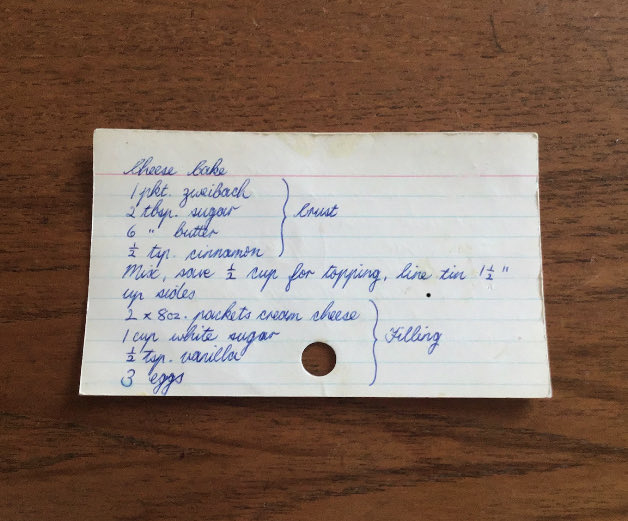 Cheese Cake
1 pkt. zweibach
2 tbsp. sugar
6 " butter
½ tsp. cinnamon
Crust
Mix, save ½ cup for topping, line tin 1½"
up sides
2 x 8oz. packets cream cheese
1 cup white sugar
½ tsp. vanilla
3 eggs
Filling